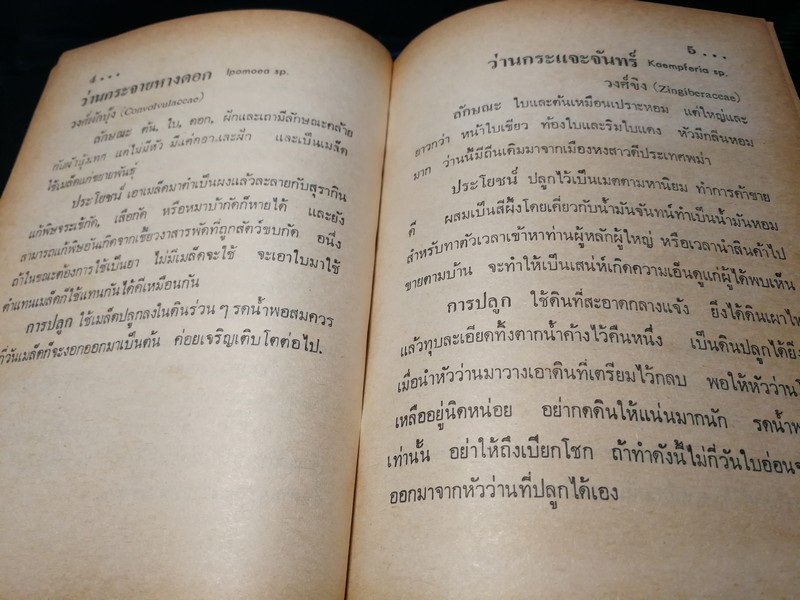 4...
ว่านกระจายหางดอก Ipomoea sp.
วงศ์ผักบุ้ง (Convolvulaceae)
ลักษณะ ต้น, ใบ, ดอก, ฝักและเถามีลักษณะคล้าย
กับผักบุ้งเทศ แต่ไม่มีหัว มีแต่ดอกและฝัก และเป็นเมล็ด
ใช้เมล็ดแก่ขยายพันธุ์
ประโยชน์ เอาเมล็ดมาตำเป็นผงแล้วละลายกับสุรากิน
แก้พิษจระเข้กัด, เสือกัด หรือหมาบ้ากัดก็หายได้ และยัง
สามารถแก้พิษอันเกิดจากเขี้ยวงาสารพัดที่ถูกสัตว์ขบกัด อนึ่ง
ถ้าในขณะต้องการใช้เป็นยา ไม่มีเมล็ดจะใช้ จะเอาใบมาใช้
ตำแทนเมล็ดก็ใช้แทนกันได้ดีเหมือนกัน
การปลูก ใช้เมล็ดปลูกลงในดินร่วน ๆ รดน้ำพอสมควร
กี่วันเมล็ดก็จะงอกออกมาเป็นต้น ค่อยเจริญเติบโตต่อไป.
5...
ว่านกระแจะจันทร์ Kaempferia sp.
วงศ์ขิง (Zingiberaceae)
ลักษณะ ใบและต้นเหมือนเปราะหอม แต่ใหญ่และ
ยาวกว่า หน้าใบเขียว ท้องใบและริมใบแดง หัวมีกลิ่นหอม
มาก ว่านนี้มีถิ่นเดิมมาจากเมืองหงสาวดีประเทศพม่า
ประโยชน์ ปลูกไว้เป็นเมตตามหานิยม ทำการค้าขาย
ดี ผสมเป็นสีผึ้งโดยเคี่ยวกับน้ำมันจันทน์ทำเป็นน้ำมันหอม
สำหรับทาตัวเวลาเข้าหาท่านผู้หลักผู้ใหญ่ หรือเวลานำสินค้าไป
ขายตามบ้าน จะทำให้เป็นเสน่ห์เกิดความเอ็นดูแก่ผู้ได้พบเห็น
การปลูก ใช้ดินที่สะอาดกลางแจ้ง ยิ่งได้ดินเผาไฟ
แล้วทุบละเอียดทิ้งตากน้ำค้างไว้คืนหนึ่ง เป็นดินปลูกได้ยิ่ง
เมื่อนำหัวว่านมาวางเอาดินที่เตรียมไว้กลบ พอให้หัวว่าน
เหลืออยู่นิดหน่อย อย่ากดดินให้แน่นมากนัก รดน้ำ
เท่านั้น อย่าให้ถึงเปียกโชก ถ้าทำดังนี้ไม่กี่วันใบอ่อน
ออกมาจากหัวว่านที่ปลูกได้เอง